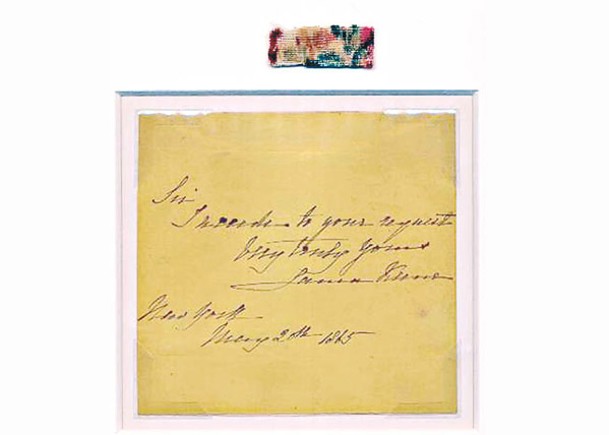 Sir
I accede to your request
Very truly yours
Laura Keene
New York
May 20th 1865